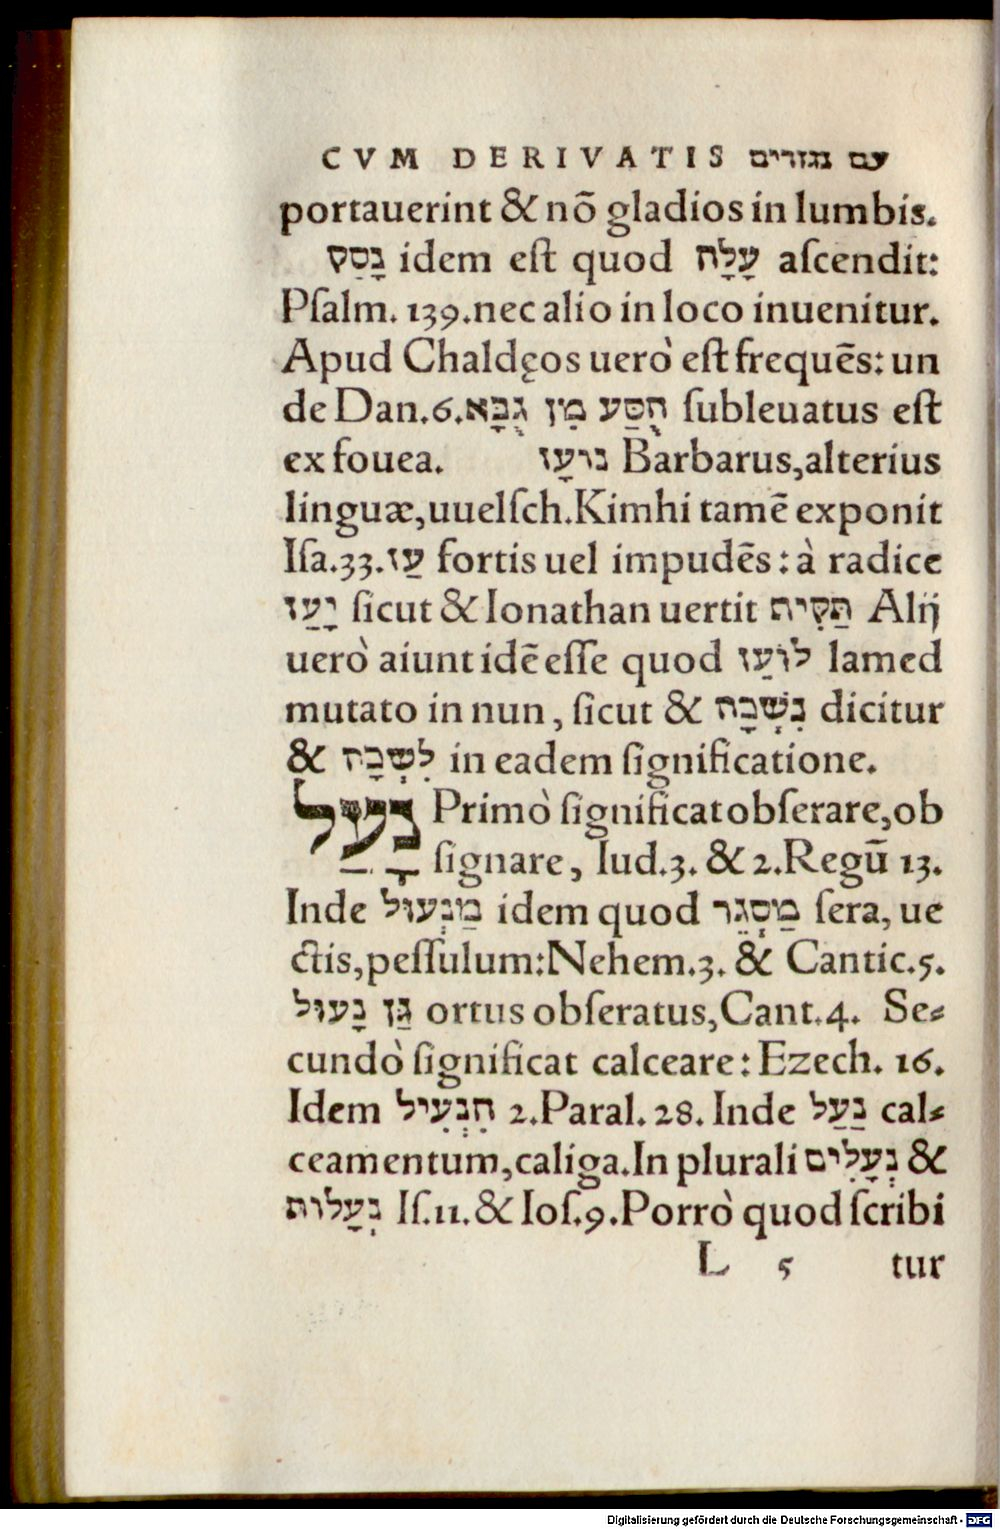 CVM DERIVATIS עם נגזרים
portauerint & nõ gladios in lumbis.
נָסַק idem eſt quod עָלָה aſcendit:
Pſalm. 139. nec alio in loco inuenitur.
Apud Chaldęos uerò eſt frequẽs: un
de Dan. 6. הֻסַּק מִן גֻּבָּא ſubleuatus eſt
ex fouea. נועָז Barbarus, alterius
linguæ, uuelſch. Kimhi tamẽ exponit
Iſa. 33. עַז fortis uel impudẽs: à radice
יָעַז ſicut & Ionathan uertit תַּקִּיף Alij
uerò aiunt idẽ eſſe quod לוֹעַז lamed
mutato in nun, ſicut & נִשְׁכָּה dicitur
& לִשְׁכָּה in eadem ſignificatione.
נָעַל Primò ſignificat obſerare, ob
ſignare, Iud. 3. & 2. Regũ 13.
Inde מַנְעוּל idem quod מַסְגֵּר ſera, ue
ctis, peſſulum: Nehem. 3. & Cantic. 5.
גַּן נָעוּל ortus obſeratus, Cant. 4. Se⸗
cundò ſignificat calceare: Ezech. 16.
Idem הִנְעִיל 2. Paral. 28. Inde נַעַל cal⸗
ceamentum, caliga. In plurali נְעָלִים &
נְעָלות Iſ. 11. & Ioſ. 9. Porrò quod ſcribi
L 5 tur
Digitalisierung gefördert durch die Deutsche Forschungsgemeinschaft - DFG